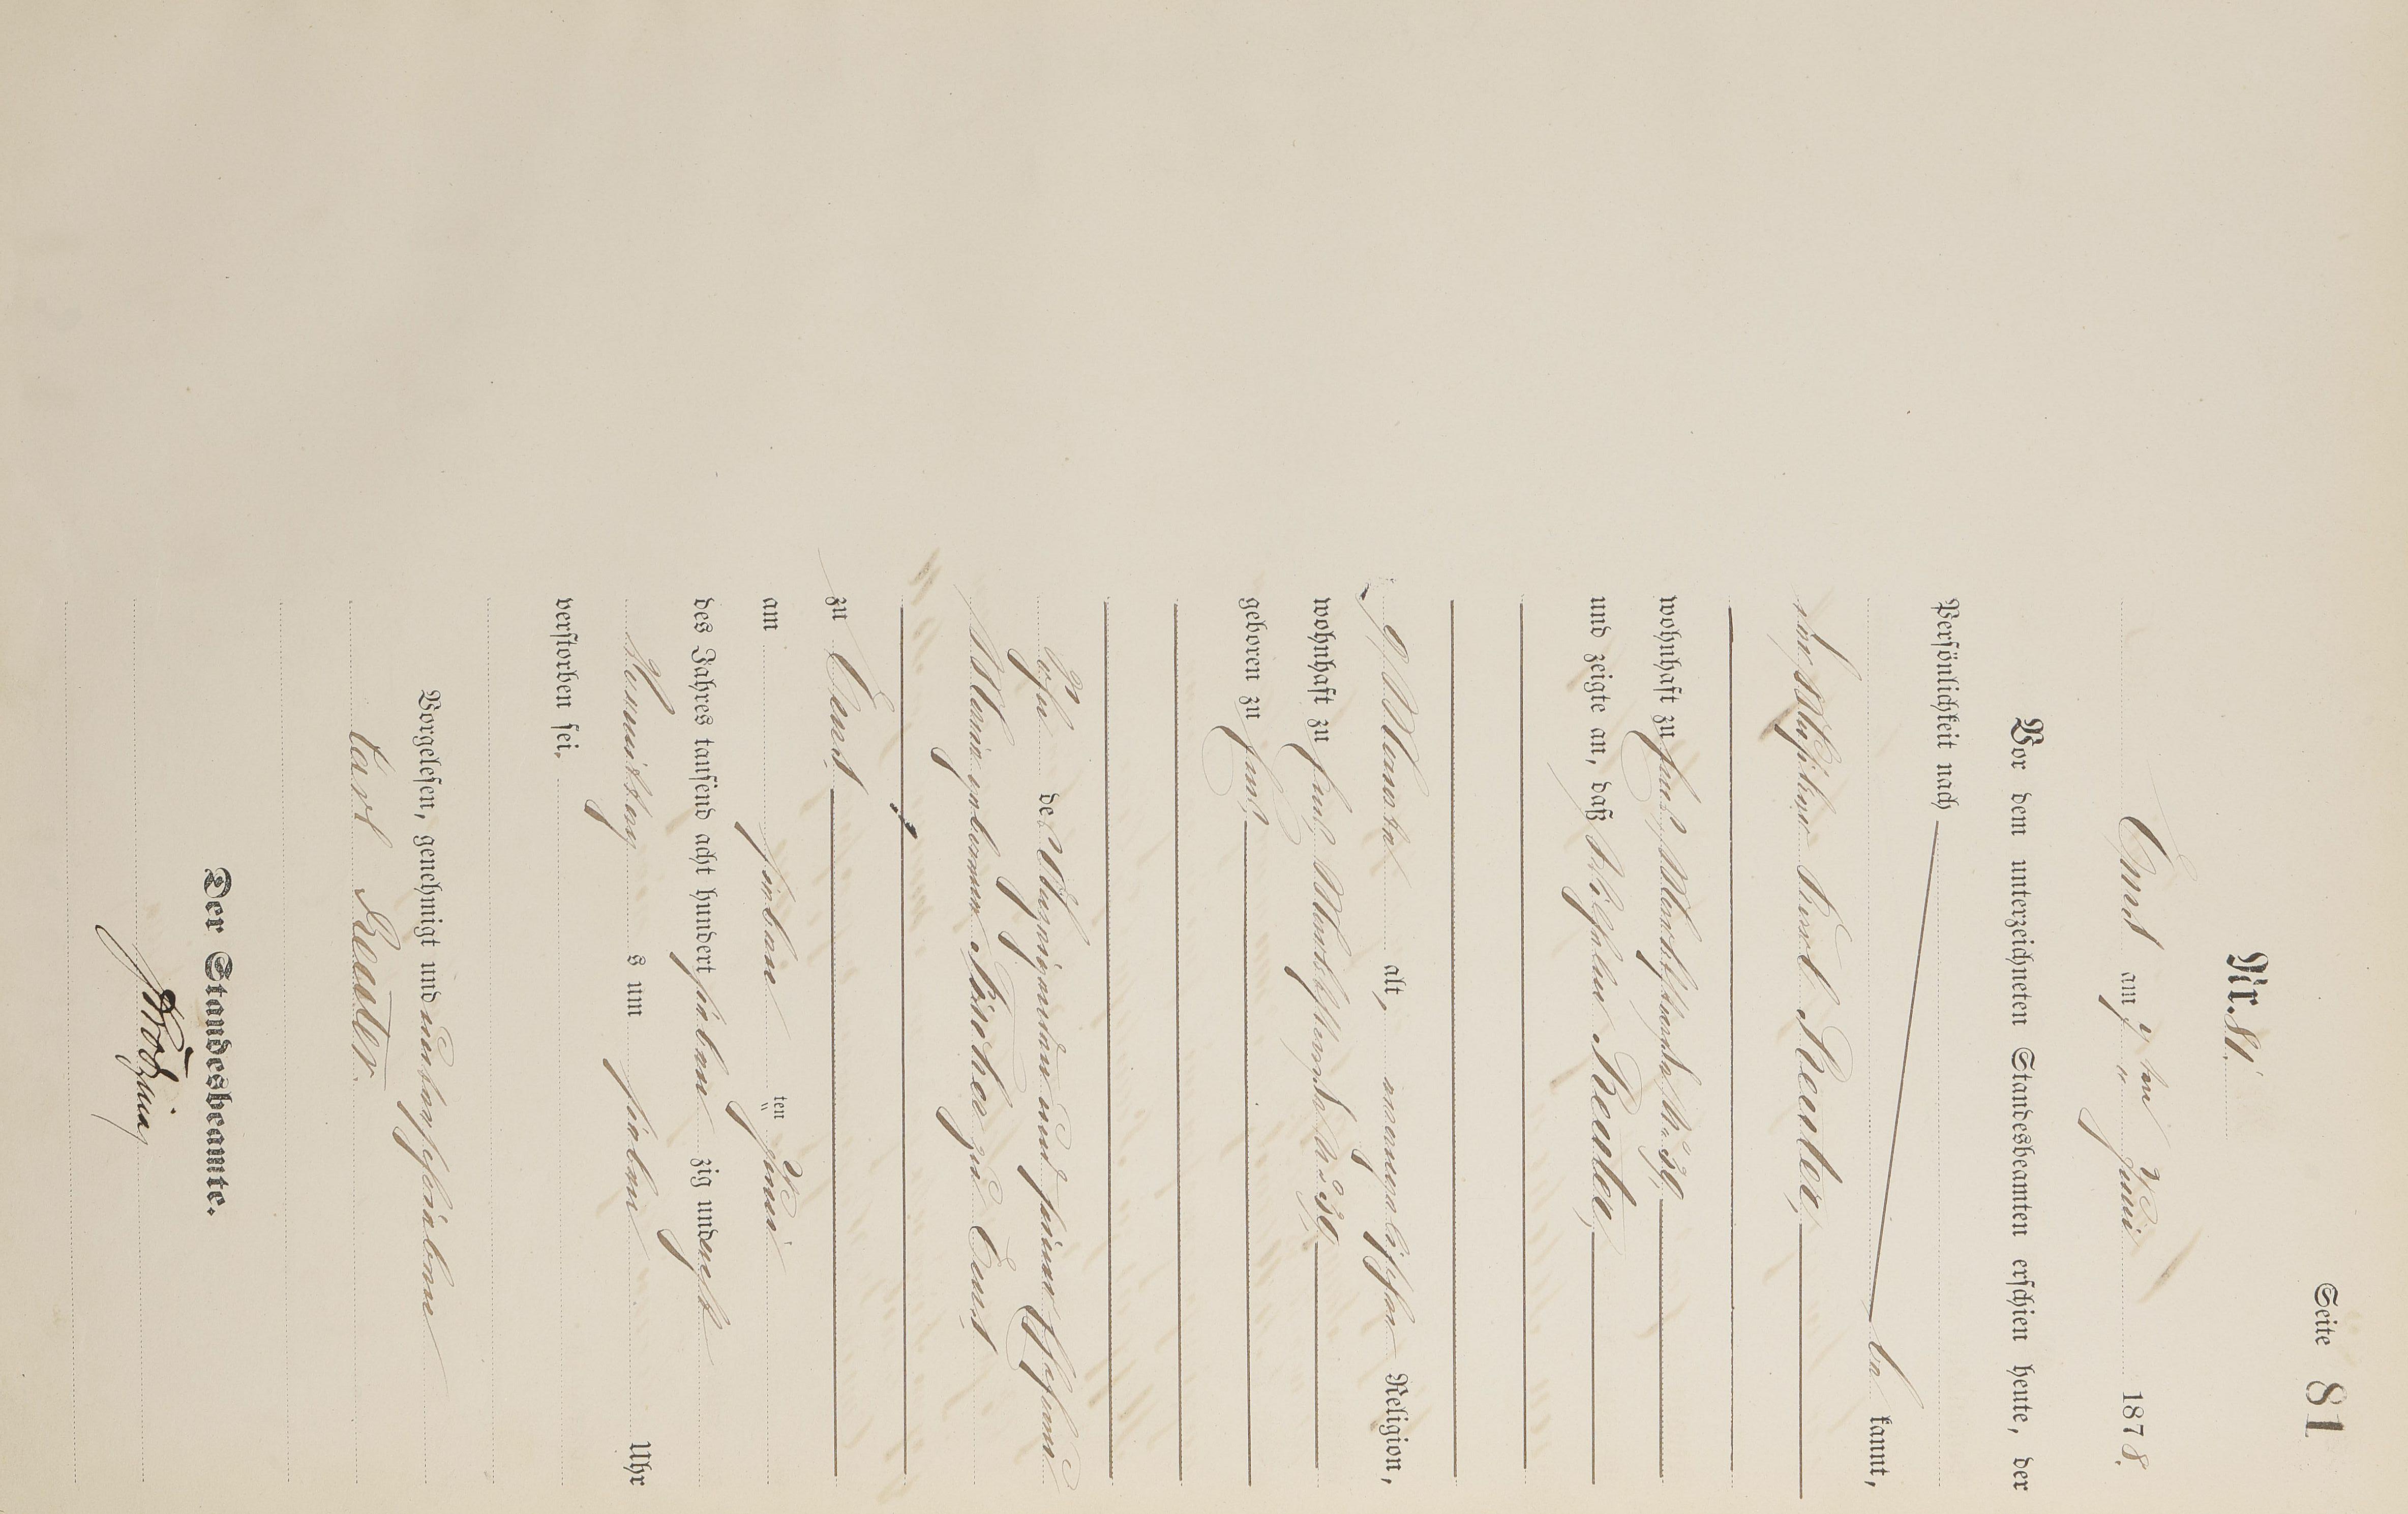 Seite 81
Nr. 81.
Ems am 7 ten Juni 1878.
Vor dem unterzeichneten Standesbeamten erschien heute, der
Persönlichkeit nach
be kannt,
Carl Reuter,
wohnhaft zu Ems, Marktstraße No 39,
und zeigte an, daß Wilhelm Reuter,
9 Monate alt, evangelischer Religion,
wohnhaft zu Ems, Marktstraße No 39,
geboren zu Ems,
Sohn des Anzeigenden und seiner Ehefrau
geborenen Fischer zu Ems
zu Ems,
am sieben ten Juni
des Jahres tausend acht hundert sieben zig und acht
Vormittag s um sieben Uhr
verstorben sei.
Vorgelesen, genehmigt und unterschrieben
Carl Reuter.
Der Standesbeamte.